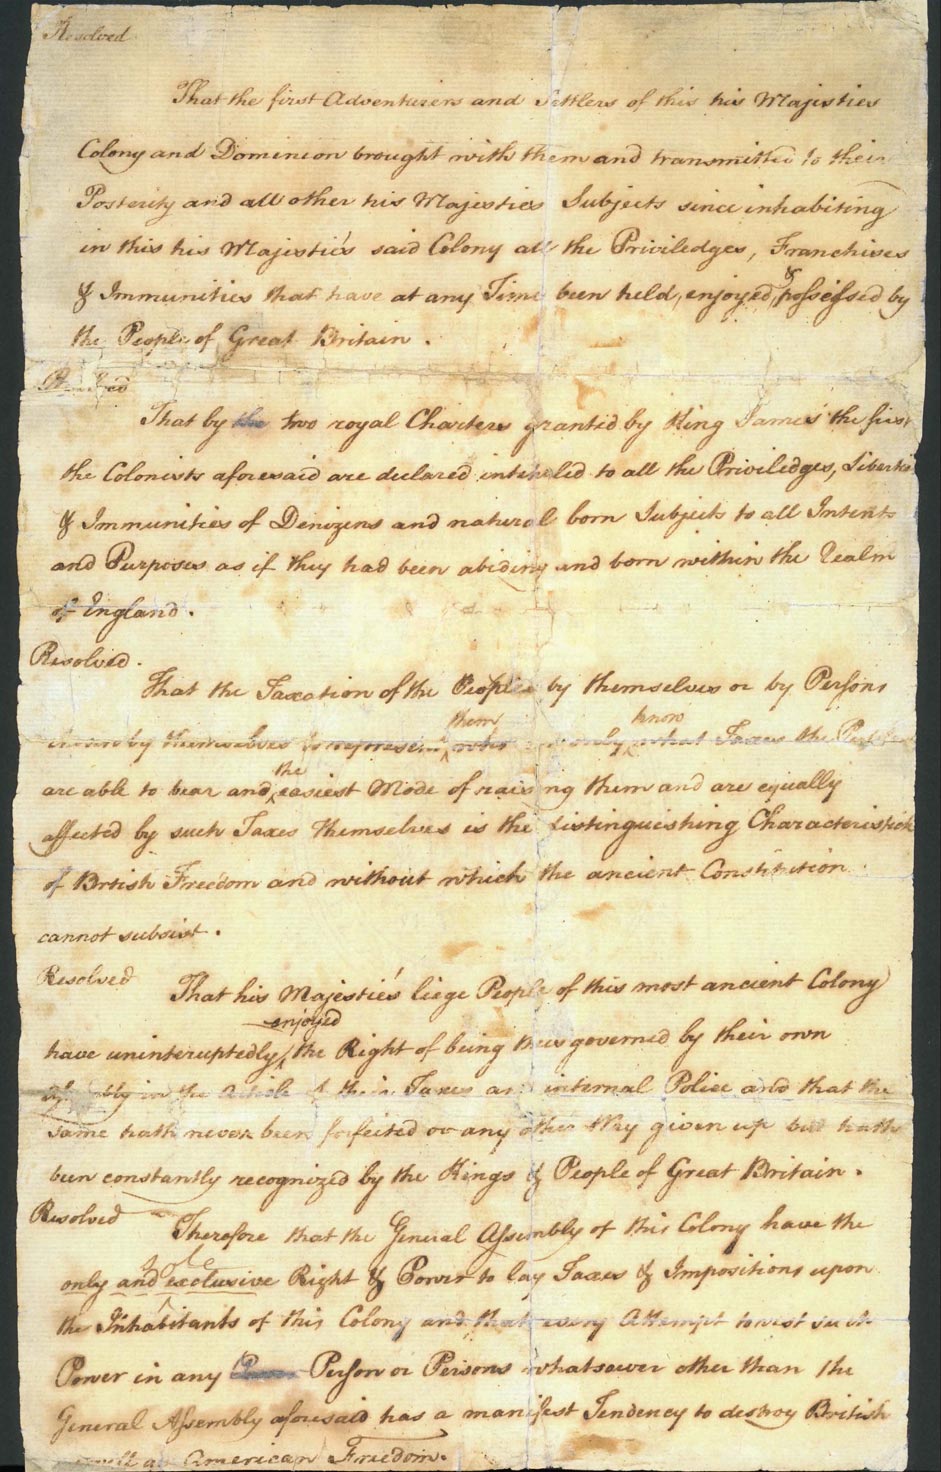 Resolved
That the first Adventurers and Settlers of this his Majesties
Colony and Dominion brought with them and transmitted to their
Posterity and all other his Majesties Subjects since inhabiting
in this his Majestie's said Colony all the Priviledges, Franchises
& Immunities that have at any Time been held, enjoyed, & possessed by
the People of Great Britain.
Resolved
That by the two royal Charters granted by King James the first
the Colonists aforesaid are declared intituled to all the Priviledges, Liberties
& Immunities of Denizens and natural born Subjects to all Intents
and Purposes as if they had been abiding and born within the Realm
of England.
Resolved.
That the Taxation of the People by themselves or by Persons
chosen by themselves to represent them who can only know what Taxes the People
are able to bear and the easiest Mode of raising them and are equally
affected by such Taxes Themselves is the distinguishing Characteristick
of Brtish Freedom and without which the ancient Constitution
cannot subsist.
Resolved
That his Majestie's liege People of this most ancient Colony
have uninteruptedly enjoyed the Right of being thus governed by their own
Assembly in the Article of their Taxes and internal Police and that the
same hath never been forfeited or any other Way given up but hath
been constantly recognized by the Kings & People of Great Britain.
Resolved
Therefore that the General Assembly of this Colony have the
only and sole exclusive Right & Power to lay Taxes & Impositions upon
the Inhabitants of this Colony and that every Attempt to vest such
Power in any Person or Persons whatsoever other than the
General Assembly aforesaid has a manifest Tendency to destroy British
as well as American Freedom.